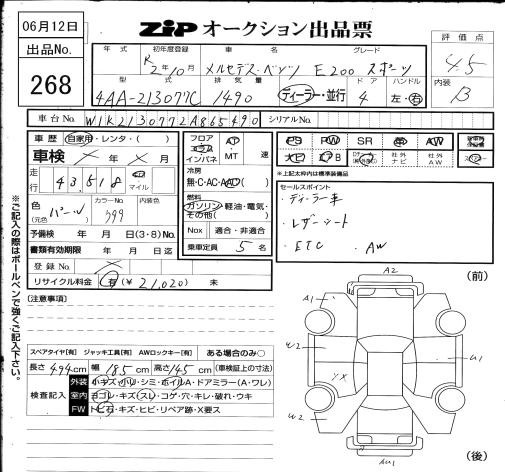 06月12日
ZIP オークション出品票
出品No.
268
評価点
4.5
内装
B
年式 初年度登録 車名 グレード
R2年10月 メルセデス・ベンツ E200 スポーツ
型式 排気量 ドア ハンドル
4AA-213077C 1490 ディーラー・並行 4 左・右
車台No. W1K2130772A865490 シリアルNo.
車歴 自家用・レンタ・( )
車検 × 年 × 月
走行 43,518 km マイル
色(元色) パール カラーNo. 799 内装色
予備検 年 月 日(3・8)No.
書類有効期限 年 月 日迄
登録No. ×
リサイクル料金 有(¥21,020) 未
フロア コラム インパネ AT MT 速
冷房 無・C・AC・AAC( )
燃料 ガソリン・軽油・電気・その他( )
Nox 適合・非適合
乗車定員 5 名
PS PW SR 革 AW
ナビ エアB 社外ナビ 社外AW
※上記太枠内は標準装備品
セールスポイント
・ディーラー車
・レザーシート
・ETC ・AW
[注意事項]
スペアタイヤ[有] ジャッキ工具[有] AWロックキー[有] ある場合のみ○
長さ 494cm 幅 185cm 高さ 145cm (車検証上の寸法)
検査記入
外装 小キズ・小凹・シミ・ホイルA・ドアミラー(A・ワレ)
室内 ヨゴレ・キズ・スレ・コゲ・穴・キレ・破れ・ウキ
FW トビ石・キズ・ヒビ・リペア跡・X要ス
※ご記入の際はボールペンで強くご記入下さい。
(前)
A2
A1
U2
U1
YX
U2
AU1
(後)